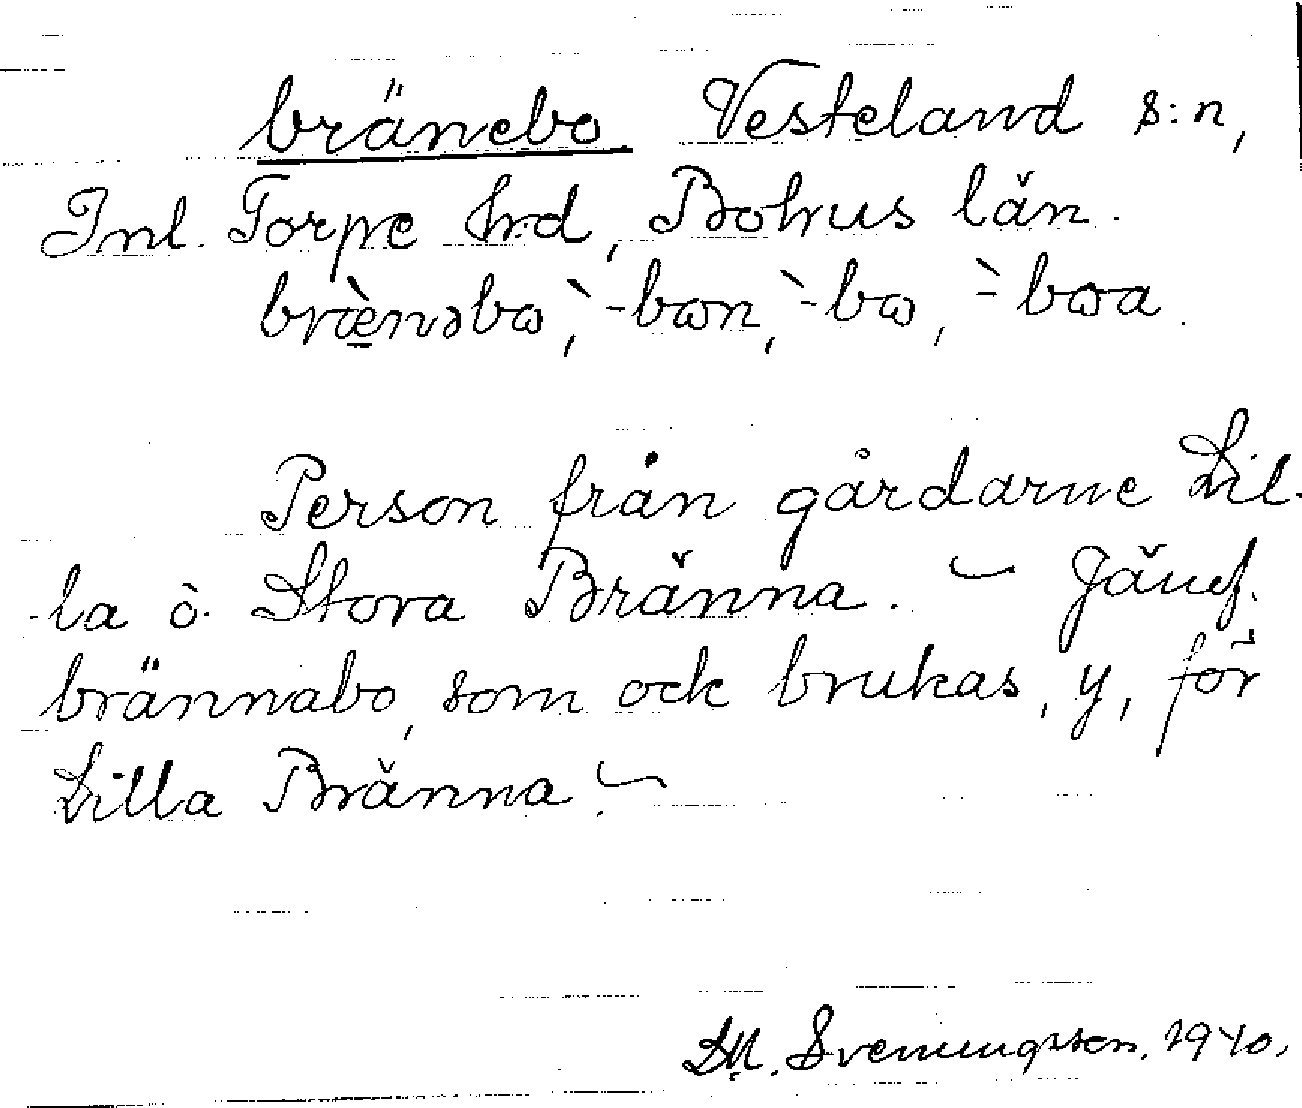 bränebo Vesteland s:n,
Inl. Torpe hrd, Bohus län.
bræ̀nəbɷ, `-bɷn, `-bɷ, `-bɷa.
Person från gårdarne Lil-
-la ò. Stora Bränna. – Jämf.
brännabo, som ock brukas, y, för
Lilla Bränna. –
Svenungsson. 1940.